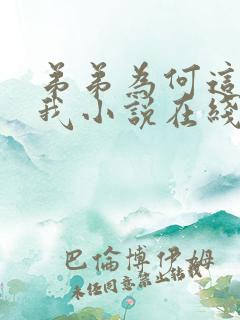 弟弟為何這
我小說在綫
巴倫博伊姆
未经同意禁止转载